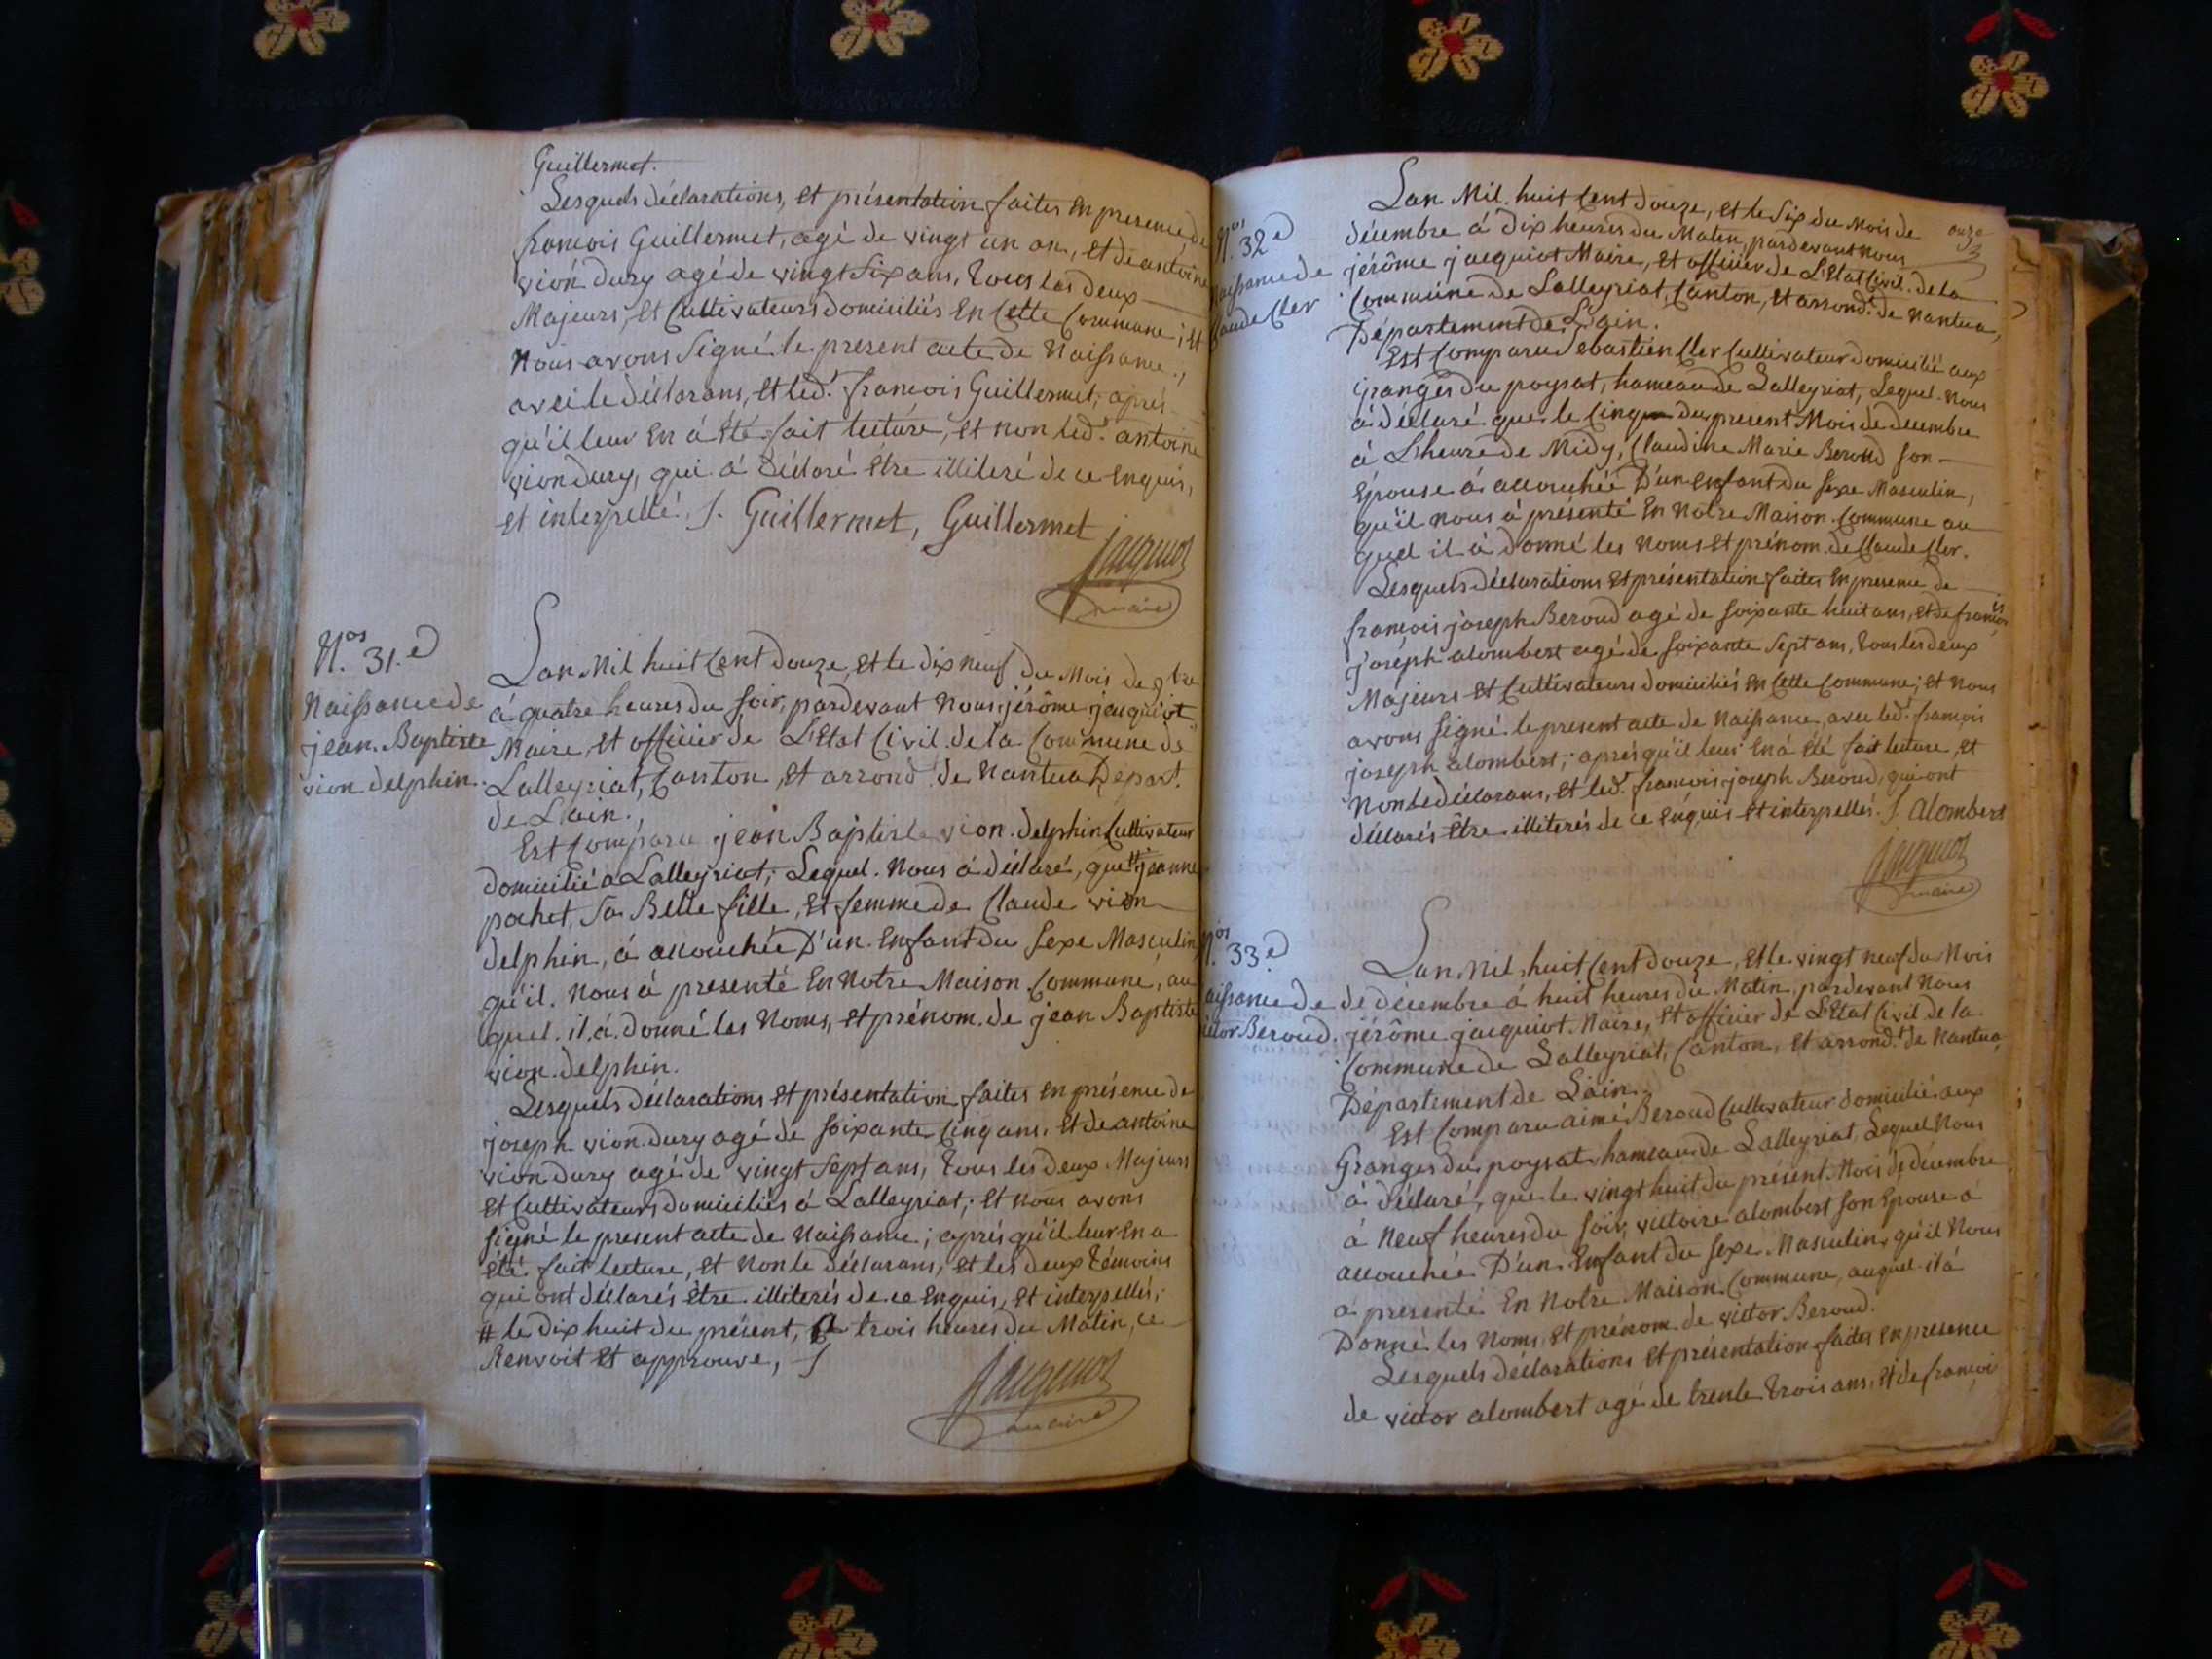 Guillermet.
Lesquels déclarations, et présentation faites En presence de
francois Guillermet, agé de vingt un an, et de antoine
vion dury agé de vingt six ans, tous les deux
Majeurs, et Cultivateurs domiciliés En Cette Commune; Et
Nous avons Signé le present acte de Naissance,
avec le déclarans, et led.t francois Guillermet, aprés
qu'il leur En á été fait lecture, et non led.t antoine
vion dury, qui á déclaré Etre illiteré de ce Enquis,
et interpellé. /. Guillermet, Guillermet
Jacquiot
maire
N.os 31.e
Naissance de
jean. Baptiste
vion delphin.
Lan Mil huit Cent douze, et le dix neuf du Mois de 9bre
á quatre heures du soir, pardevant Nous jérôme jacquiot
Maire, et officier de L'Etat Civil de la Commune de
Lalleyriat, Canton, et arrond.t de Nantua Depart.t
de L'ain.,
Est Comparu jean Baptiste vion. delphin Cultivateur
domicilié a Lalleyriat; Lequel. Nous á déclaré, que # jeanne
pochet, sa Belle fille, et femme de Claude vion
delphin, á accouchée D'un. Enfant du sexe Masculin
qu'il. Nous á presenté En Notre Maison Commune, au
quel. il. á. donné les Noms, et prénom. de jean Baptiste
vion. delphin.
Lesquels déclarations et présentation faites en présence de
joseph vion dury agé de soixante Cinq ans. et de antoine
vion dury agé de vingt sept ans, tous les deux Majeurs
et Cultivateurs domiciliés á Lalleyriat; et nous avons
signé le present acte de Naissance; aprés qu'il leur En a
été fait lecture, et Non le déclarans, et les deux témoins
qui ont déclarés être illiterés de ce Enquis, et interpellés;
# le dix huit du présent, á trois heures du Matin, ce
Renvoit et approuvé, /
Jacquiot
maire
onze
N.os 32.e
Naissance de
Claude Cler
Lan Mil. huit Cent Douze, et le Six du Mois de
décembre á dix heures du Matin, pardevant nous
jérôme jacquiot Maire, et officier de L'Etat Civil. de la
Commune de Lalleyriat, Canton, et arrond.t de Nantua,
Département de L'ain.
Est Comparu Sebastien Cler Cultivateur domicilié aux
Granges du poysat, hameau de Lalleyriat, Lequel. Nous
á déclaré que le Cinq du present Mois de decembre
á L'heure de Midy, Claudine Marie Beroud son
Epouse á accouchée D'un enfant du sexe Masculin,
qu'il nous á presenté En Notre Maison Commune au
quel il á donné les Noms et prénom de Claude Cler.
Lesquels déclarations et présentation faites En presence de
francois joseph Beroud agé de soixante huit ans, et de francois
joseph alombert agé de soixante Sept ans, tous les deux
Majeurs et Cultivateurs domiciliés en Cette Commune; et nous
avons signé le present acte de Naissance, avec led.t francois
joseph alombert; aprés qu'il leur En á été fait lecture, et
Non le déclarans, et led.t francois joseph Beroud, qui ont
déclarés être illiterés de ce Enquis et interpellés. /. alombert
Jacquiot
maire
N.os 33.e
Naissance de
victor Beroud.
Lan Mil, huit Cent douze, et le vingt neuf du Mois
de décembre á huit heures du Matin, pardevant Nous
jérôme jacquiot Maire, et officier de L'Etat Civil de la
Commune de Lalleyriat, Canton, et arrond.t de Nantua,
Département de L'ain.
Est Comparu aimé Beroud Cultivateur domicilié aux
Granges du poysat hameau de Lalleyriat, Lequel Nous
á déclaré, que le vingt huit du présent Mois de décembre
á Neuf heures du soir, victoire alombert son Epouse á
accouchée D'un Enfant du sexe Masculin, qu'il Nous
á presenté En Notre Maison Commune, auquel il á
Donné les Noms, et prénom de victor Beroud.
Lesquels déclarations et présentation faites en presence
de victor alombert agé de trente trois ans, et de francois